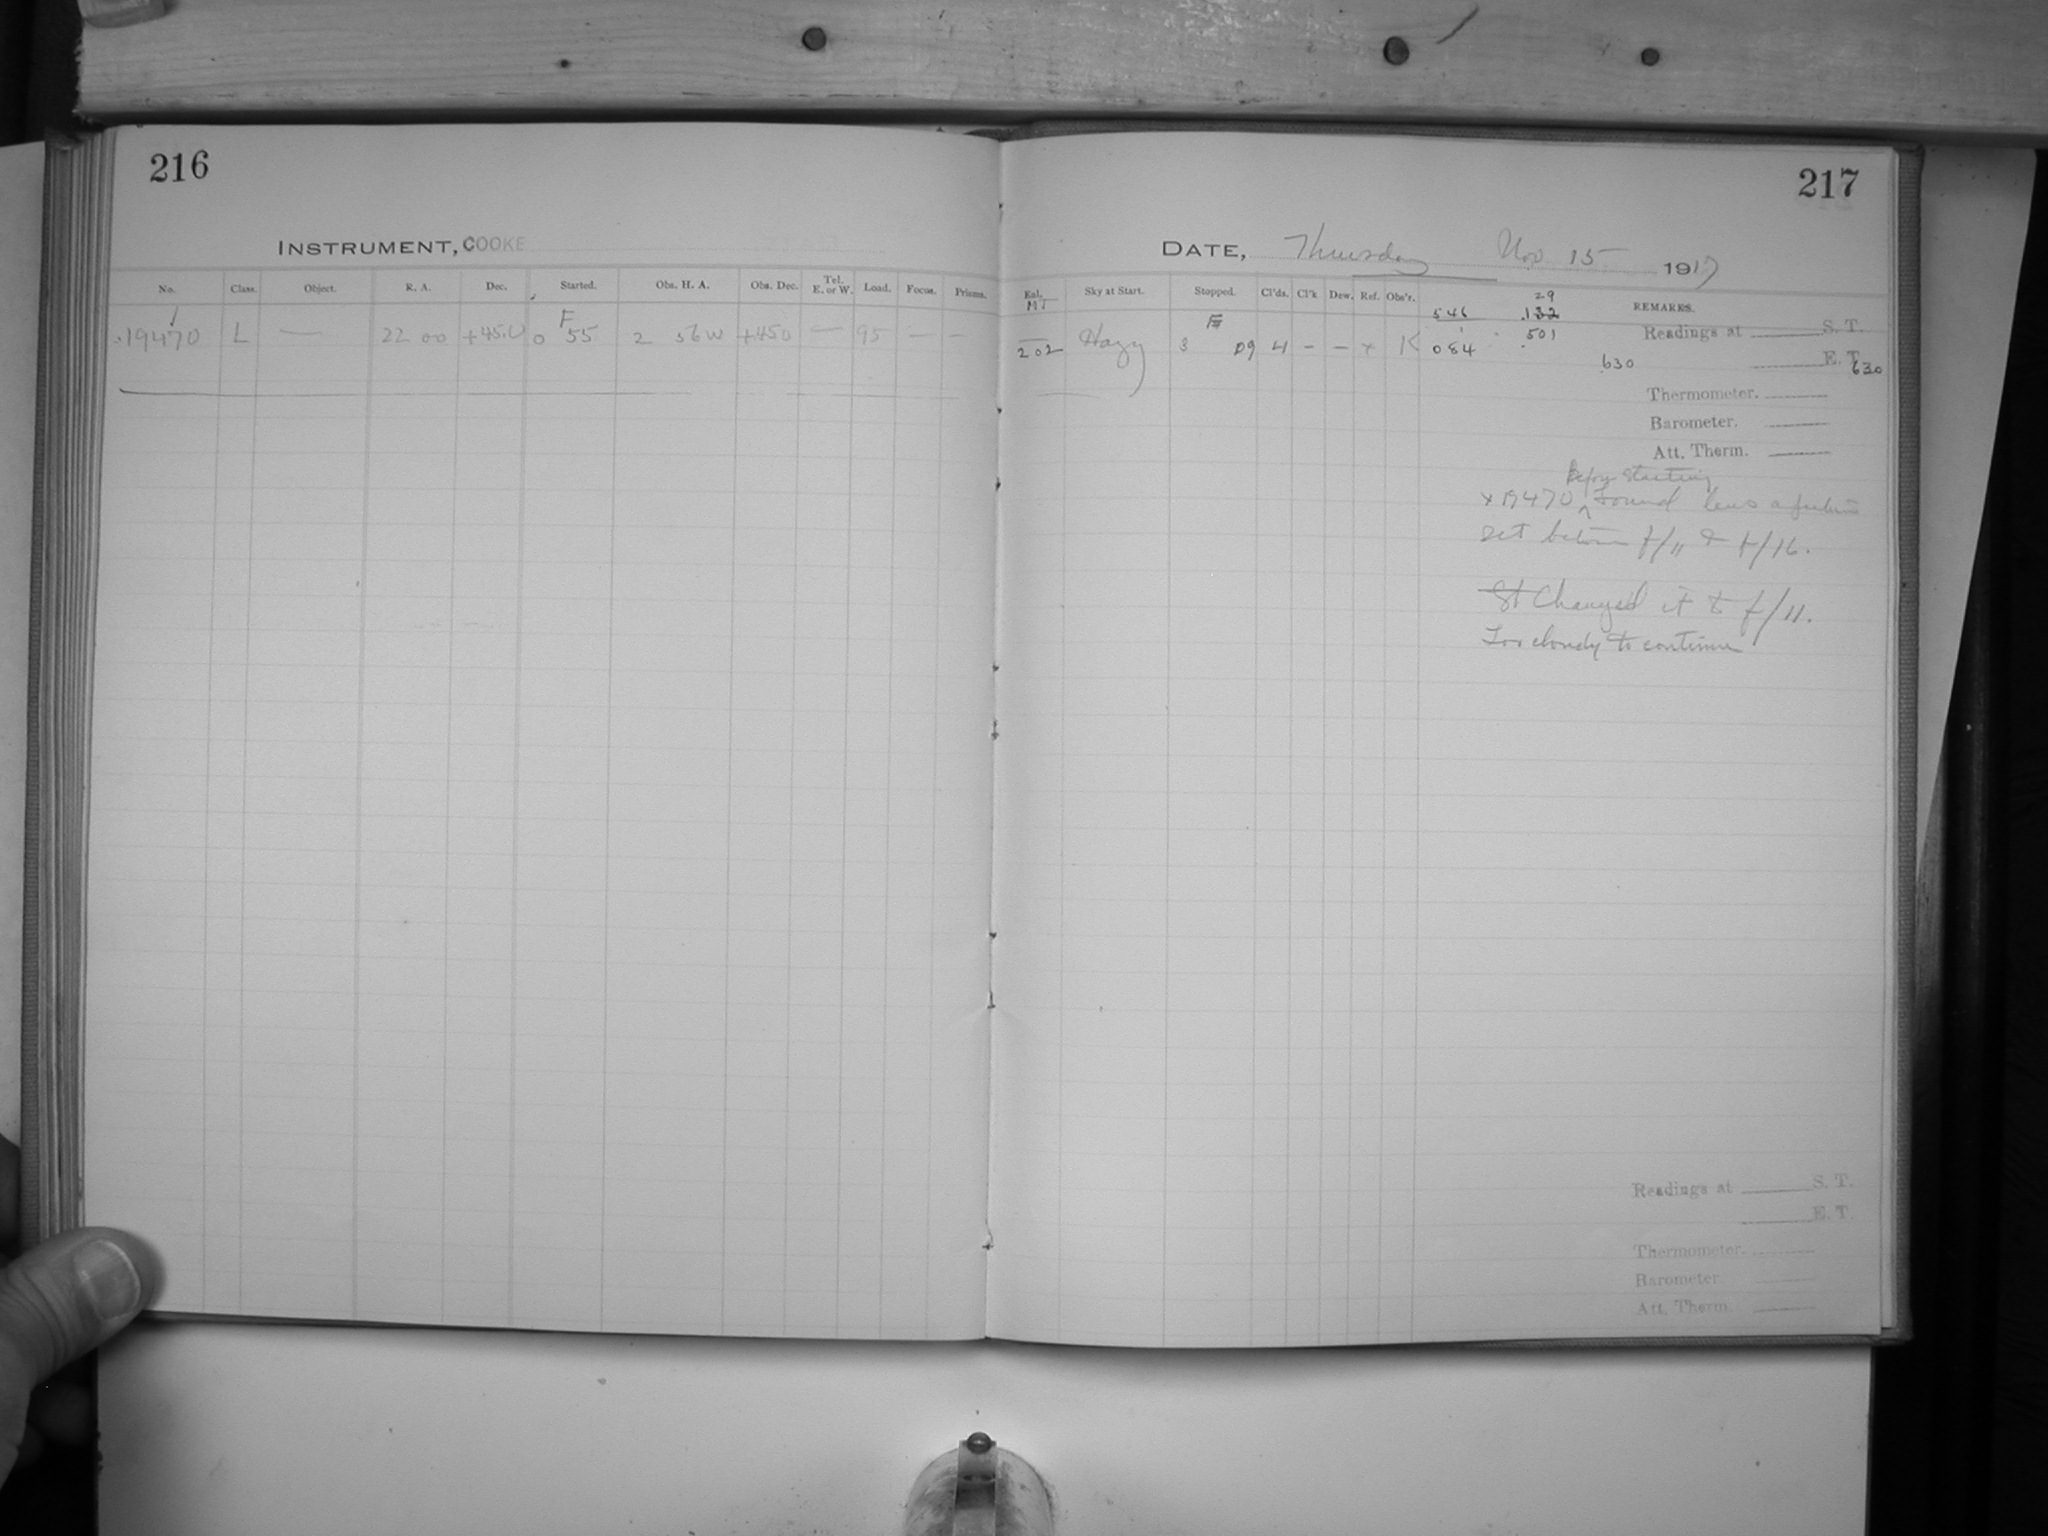 216
INSTRUMENT, COOKE
No. Class. Object. R. A. Dec. Started. Obs. H. A. Obs. Dec. Tel. E. or W. Load. Focus. Prisms.
F
19470 L — 22 00 +45.0 0 55 2 56 W +45.0 — 95 — —
217
DATE, Thursday Nov 15 1917
Sky at Start. Stopped. Cl'ds. Cl'k Dew. Ref. Obs'r. REMARKS.
202 Hazy 3 09 4 – – + K
546 29
.132
084 501
.630 630
Readings at S. T.
E. T.
Thermometer.
Barometer.
Att. Therm.
Before starting
x 19470 ^ Found lens aperture
set between f/11 & f/16.
St Changed it to f/11.
Too cloudy to continue
Readings at S. T.
E. T.
Thermometer.
Barometer.
Att. Therm.